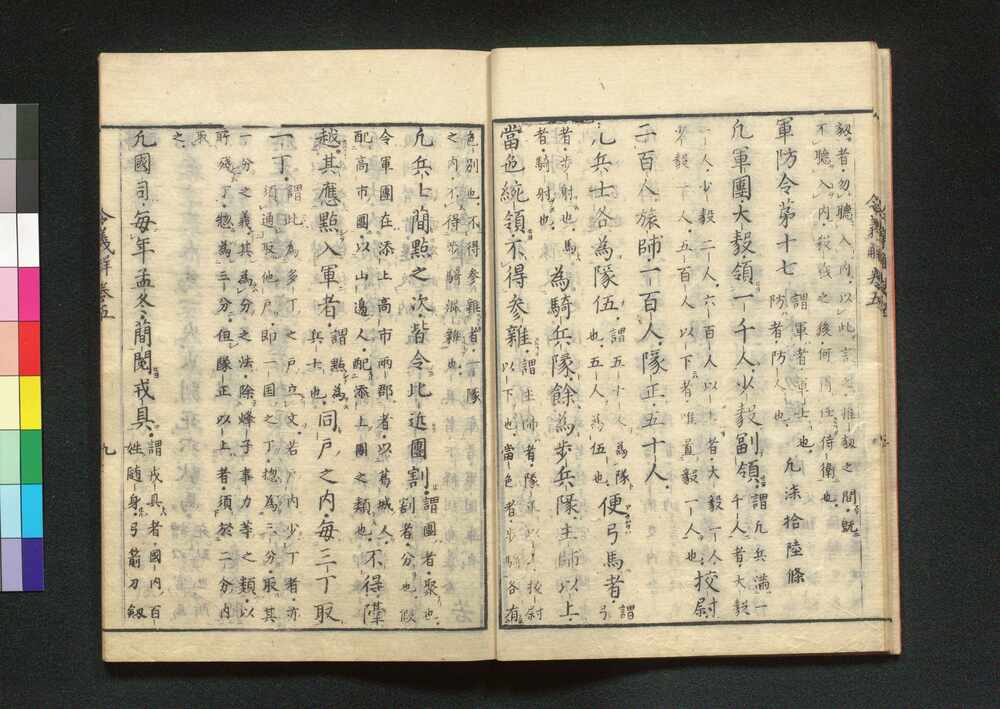 釼者。勿聴入内。以此言之。推劾之間。既
不聴入内。役成之後。何因任侍衛也
軍防令第十七 謂軍者。軍士也。防者。防人也 凢柒拾陸條
凢軍團大毅領一千人。少毅副領。謂凢兵満一千人者大毅
一人。少毅二人。六百人以上者大毅一人
少毅一人。五百人以下者唯置毅一人也 校尉
二百人。旅師一百人。隊正五十人。
凢兵士各為隊伍。謂五十人為隊也五人為伍也 便弓馬者 謂弓
者。歩射也。馬者。騎射也 為騎兵隊。餘為歩兵隊。主帥以上
當色統領。不得參雜。謂主帥者。隊正以上校尉以下也。當色者。歩騎各有
色別也。不得參雜者。一隊
之内不得歩騎混雜也
凢兵士簡點之次。皆令比近團割。謂團者。聚也。割者。分也。假
令軍團在添上高市兩郡者。以葛城人
配高市團。以山邊人配添上團之類也 不得隔
越。其應點入軍者。謂點為兵士也 同戸之内毎三丁取
一丁。謂此為多丁之戸立文。若戸内少丁者亦須通取他戸即一國之丁惣為三分取其
一分之義其為分之法。除烽子事力等之類。以
所殘丁惣為三分。但隊正以上者。須於二分内
取之
凢國司毎年孟冬簡閲戎具。謂戎具者國内百姓随身弓箭刀釼
令義解巻五
九
令義解巻五